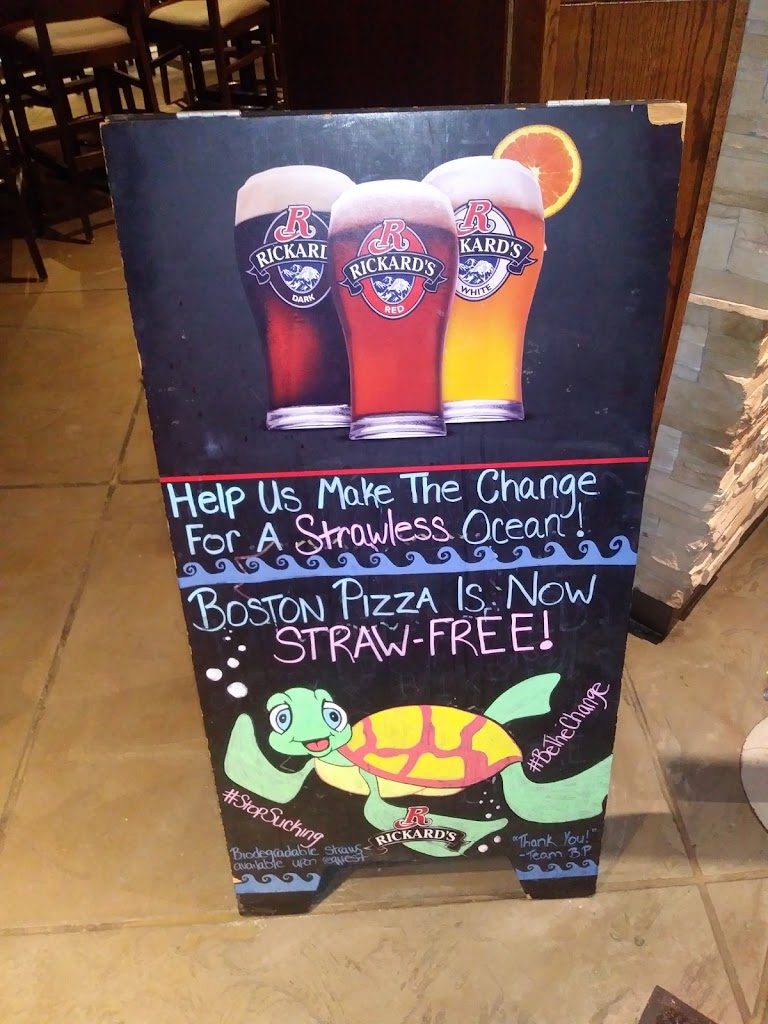 R
RICKARD'S
DARK
R
RICKARD'S
RED
R
KARD'S
WHITE
Help Us Make The Change
For A Strawless Ocean!
Boston Pizza Is Now
STRAW-FREE!
#BeTheChange
#StopSucking
R
RICKARD'S
Biodegradable straws
available upon request
"Thank You!"
-Team B.P